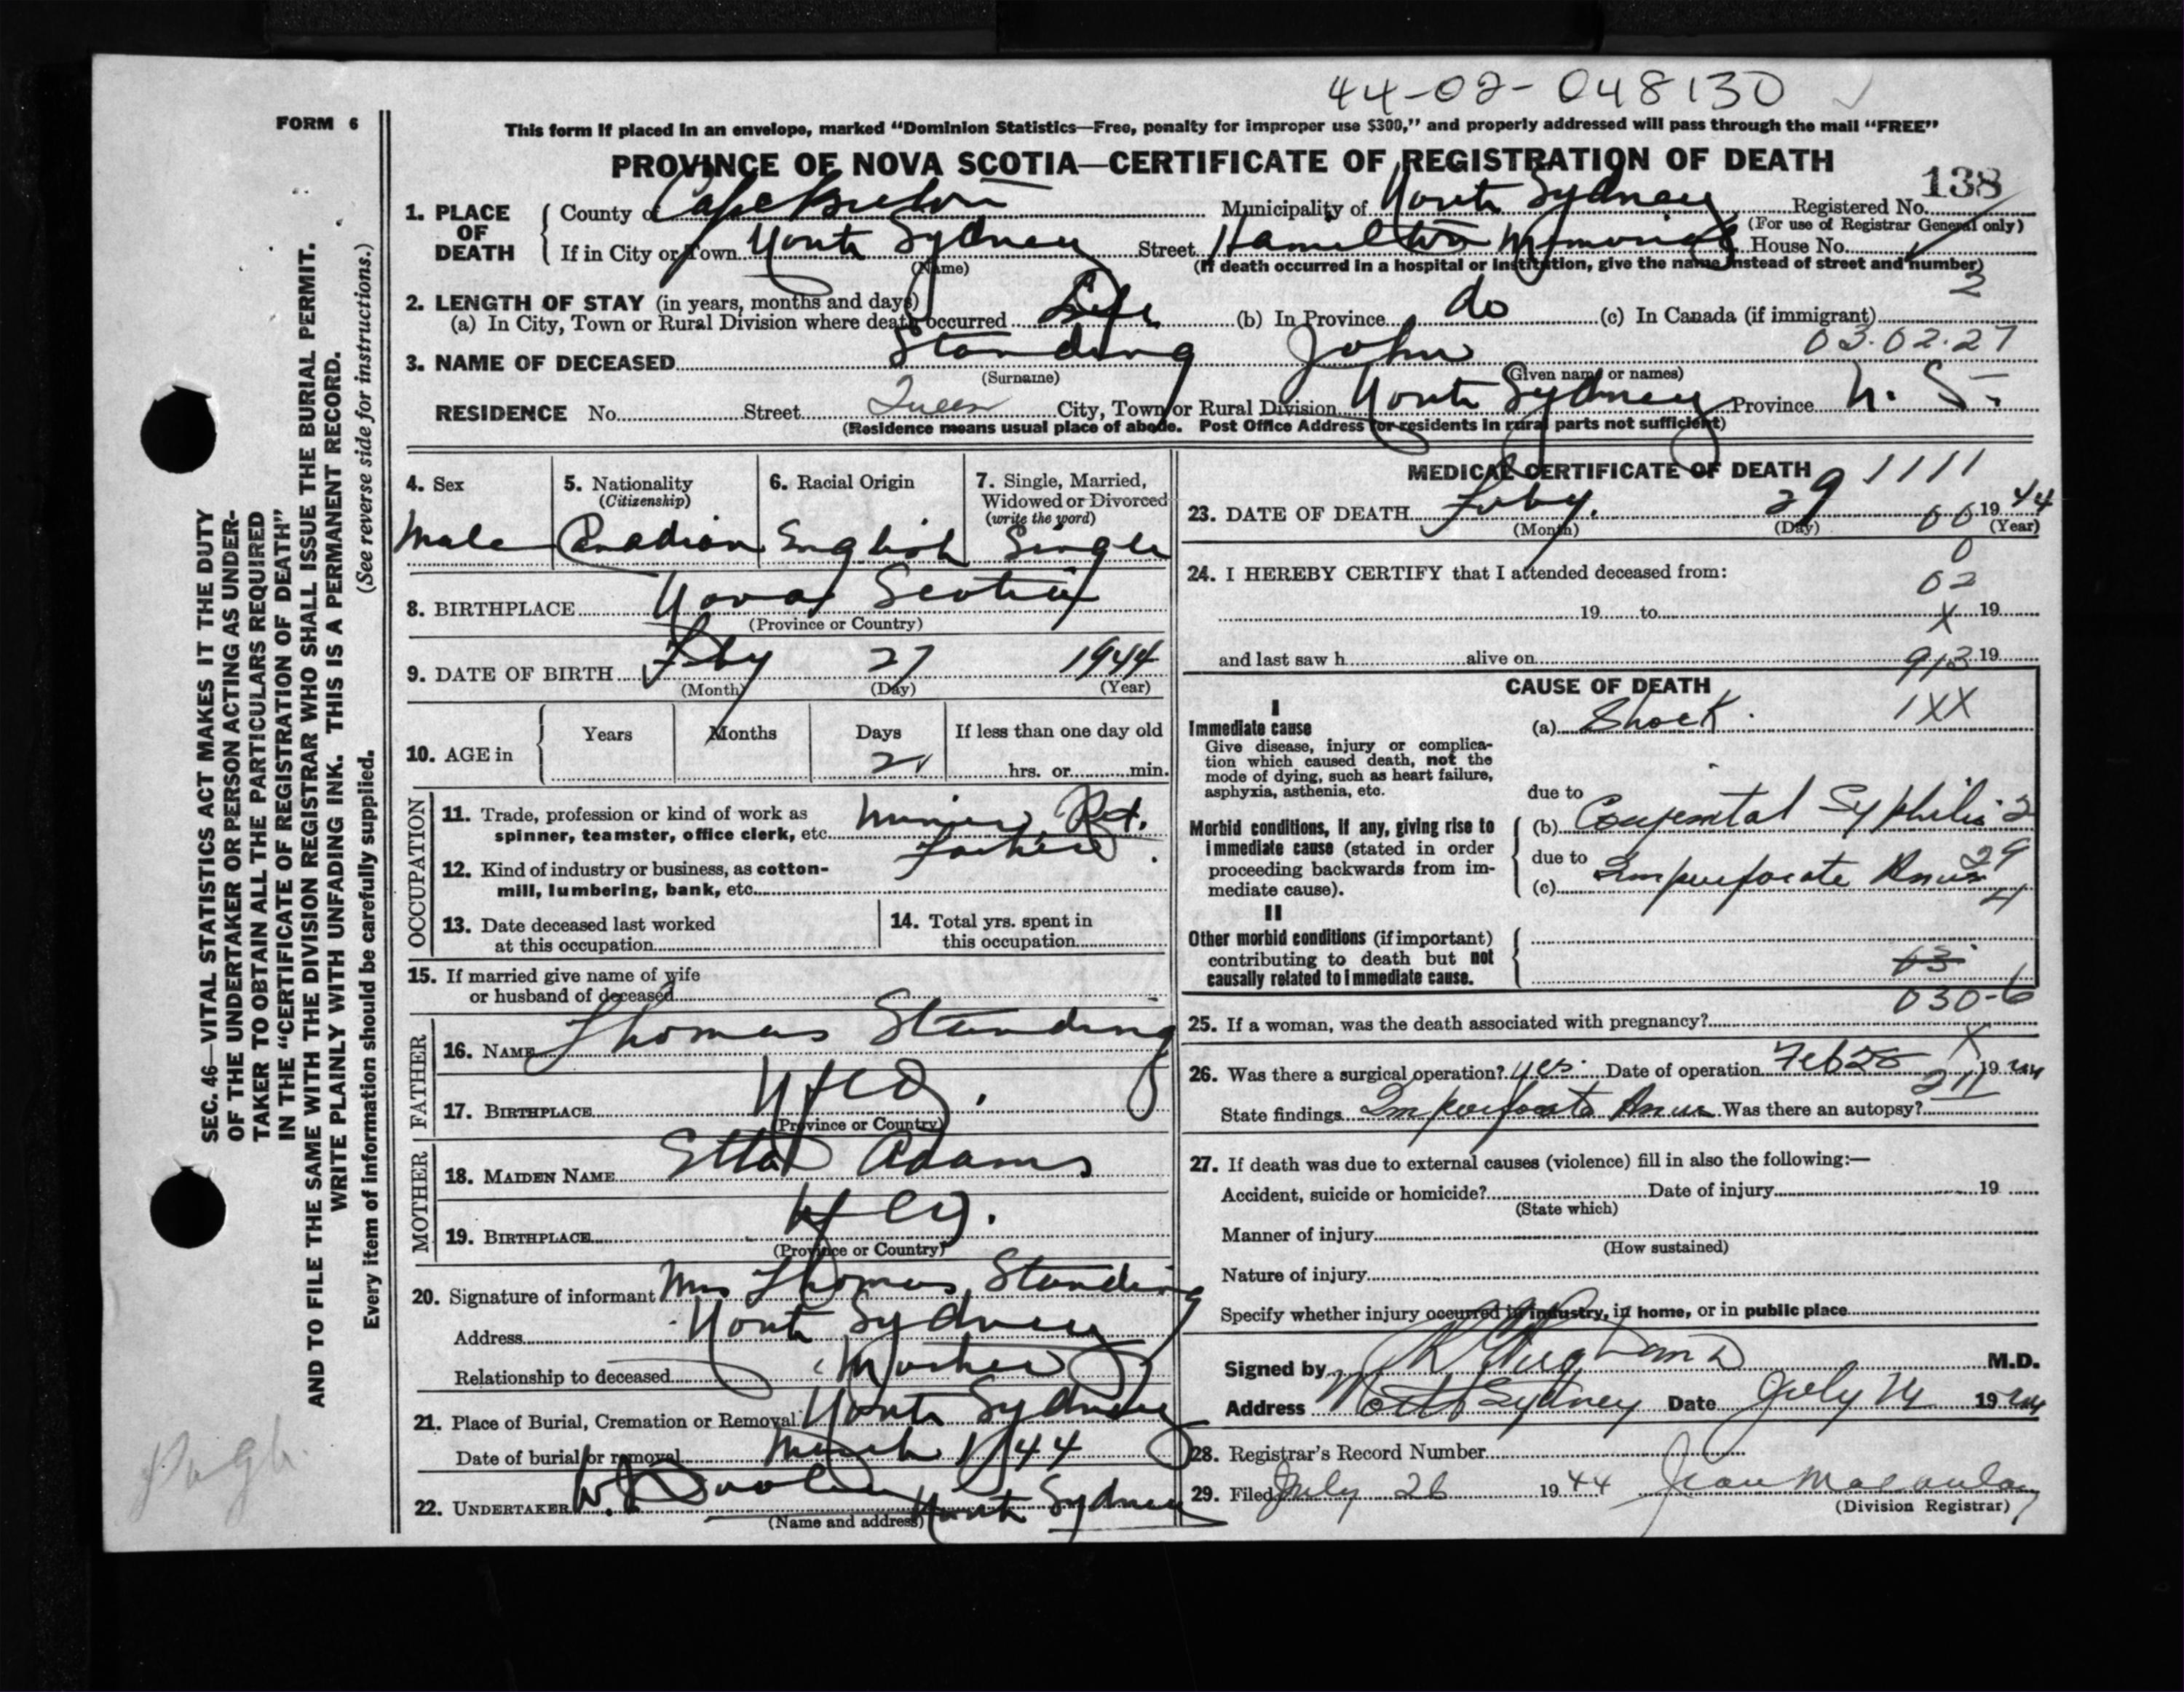 44-02-048130
FORM 6
This form if placed in an envelope, marked "Dominion Statistics—Free, penalty for improper use $300," and properly addressed will pass through the mail "FREE"
PROVINCE OF NOVA SCOTIA—CERTIFICATE OF REGISTRATION OF DEATH
138
1. PLACE OF DEATH County of Cape Breton Municipality of North Sydney Registered No.
(For use of Registrar General only)
If in City or Town North Sydney Street Hamilton Memorial House No.
(Name) (If death occurred in a hospital or institution, give the name instead of street and number)
2
2. LENGTH OF STAY (in years, months and days)
(a) In City, Town or Rural Division where death occurred Life (b) In Province do (c) In Canada (if immigrant)
03.02.27
3. NAME OF DECEASED Standing John
(Surname) (Given name or names)
RESIDENCE No. Street Queen City, Town or Rural Division North Sydney Province N. S.
(Residence means usual place of abode. Post Office Address for residents in rural parts not sufficient)
4. Sex 5. Nationality (Citizenship) 6. Racial Origin 7. Single, Married, Widowed or Divorced (write the word)
Male Canadian English Single
8. BIRTHPLACE Nova Scotia
(Province or Country)
9. DATE OF BIRTH Feby 27 1944
(Month) (Day) (Year)
10. AGE in Years Months Days If less than one day old
hrs. or min.
OCCUPATION
11. Trade, profession or kind of work as spinner, teamster, office clerk, etc. Ret.
12. Kind of industry or business, as cotton-mill, lumbering, bank, etc. Father
13. Date deceased last worked at this occupation
14. Total yrs. spent in this occupation
15. If married give name of wife or husband of deceased
FATHER
16. NAME Thomas Standing
17. BIRTHPLACE Nfld.
(Province or Country)
MOTHER
18. MAIDEN NAME Etta Adams
19. BIRTHPLACE Nfld.
(Province or Country)
20. Signature of informant Mrs Thomas Standing
Address North Sydney
Relationship to deceased Mother
21. Place of Burial, Cremation or Removal North Sydney
Date of burial or removal March 1/44
22. UNDERTAKER North Sydney
(Name and address)
MEDICAL CERTIFICATE OF DEATH
1111
23. DATE OF DEATH Feby. 29 1944
(Month) (Day) (Year)
00
0
24. I HEREBY CERTIFY that I attended deceased from:
02
19 to 19
X
and last saw h alive on 19
913
CAUSE OF DEATH
I
Immediate cause (a) Shock. 1XX
Give disease, injury or complication which caused death, not the mode of dying, such as heart failure, asphyxia, asthenia, etc.
due to
Morbid conditions, if any, giving rise to immediate cause (stated in order proceeding backwards from immediate cause).
(b) Congenital Syphilis 2
due to
29
(c) Imperforate Anus
4
II
Other morbid conditions (if important) contributing to death but not causally related to immediate cause.
63
030-6
25. If a woman, was the death associated with pregnancy?
X
26. Was there a surgical operation? yes Date of operation Feb 28 1944
211
State findings Imperforate Anus Was there an autopsy?
27. If death was due to external causes (violence) fill in also the following:—
Accident, suicide or homicide? Date of injury 19
(State which)
Manner of injury
(How sustained)
Nature of injury
Specify whether injury occurred in industry, in home, or in public place
Signed by M.D.
Address North Sydney Date July 14 1944
28. Registrar's Record Number
29. Filed July 26 1944 Jean Macaulay
(Division Registrar)
SEC. 46—VITAL STATISTICS ACT MAKES IT THE DUTY
OF THE UNDERTAKER OR PERSON ACTING AS UNDER-
TAKER TO OBTAIN ALL THE PARTICULARS REQUIRED
IN THE "CERTIFICATE OF REGISTRATION OF DEATH"
AND TO FILE THE SAME WITH THE DIVISION REGISTRAR WHO SHALL ISSUE THE BURIAL PERMIT.
WRITE PLAINLY WITH UNFADING INK. THIS IS A PERMANENT RECORD.
Every item of information should be carefully supplied. (See reverse side for instructions.)